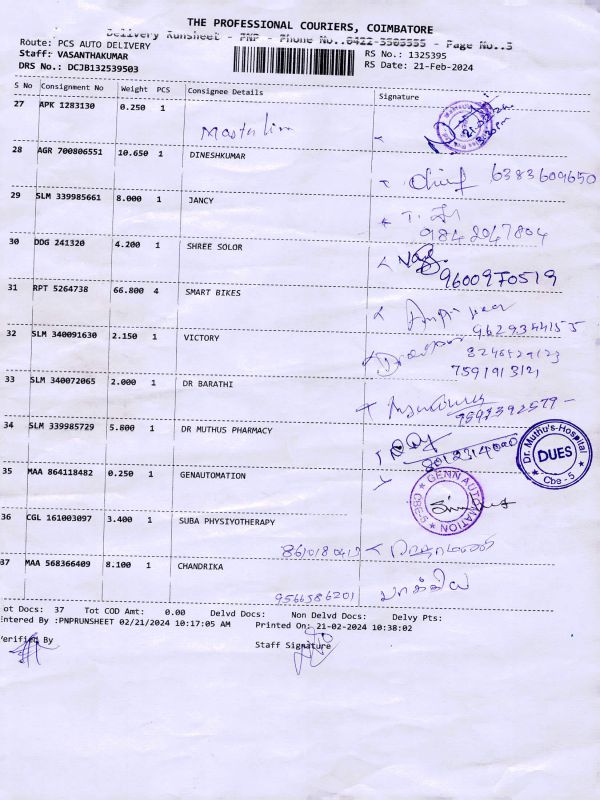 THE PROFESSIONAL COURIERS, COIMBATORE
Delivery Runsheet - PNP - Phone No.:0422-3505555 - Page No.:3
Route: PCS AUTO DELIVERY RS No.: 1325395
Staff: VASANTHAKUMAR RS Date: 21-Feb-2024
DRS No.: DCJB132539503
S No Consignment No Weight PCS Consignee Details Signature
27 APK 1283130 0.250 1
28 AGR 700806551 10.650 1 DINESHKUMAR
6383609650
29 SLM 339985661 8.000 1 JANCY
9842047804
30 DDG 241320 4.200 1 SHREE SOLOR
9600970519
31 RPT 5264738 66.800 4 SMART BIKES
9629344155
32 SLM 340091630 2.150 1 VICTORY
33 SLM 340072065 2.000 1 DR BARATHI
34 SLM 339985729 5.800 1 DR MUTHUS PHARMACY
Dr. Muthu's Hospital
DUES
Cbe - 5
35 MAA 864118482 0.250 1 GENAUTOMATION
GENN AUTOMATION
CBE-5
36 CGL 161003097 3.400 1 SUBA PHYSIYOTHERAPY
37 MAA 568366409 8.100 1 CHANDRIKA
9566586201
Tot Docs: 37 Tot COD Amt: 0.00 Delvd Docs: Non Delvd Docs: Delvy Pts:
Entered By :PNPRUNSHEET 02/21/2024 10:17:05 AM Printed On: 21-02-2024 10:38:02
Verified By Staff Signature